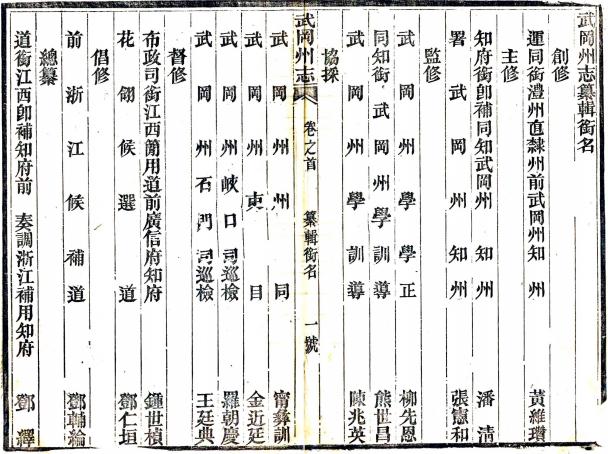 武岡州志纂輯銜名
創修
運同銜澧州直隸州前武岡州知州 黃維瓚
主修
知府銜卽補同知武岡州知州 潘清
署武岡州知州 張憲和
監修
武岡州學學正 柳先恩
同知銜武岡州學訓導 熊世昌
武岡州學訓導 陳兆英
協採
武岡州志 卷之首 纂輯銜名 一號
武岡州州同 甯彝訓
武岡州吏目 金近廷
武岡州峽口司巡檢 羅朝慶
武岡州石門司巡檢 王廷典
督修
布政司銜江西簡用道前廣信府知府 鍾世楨
花翎候選道 鄧仁垣
倡修
前浙江候補道 鄧輔綸
總纂
道銜江西卽補知府前 奏調浙江補用知府 鄧繹